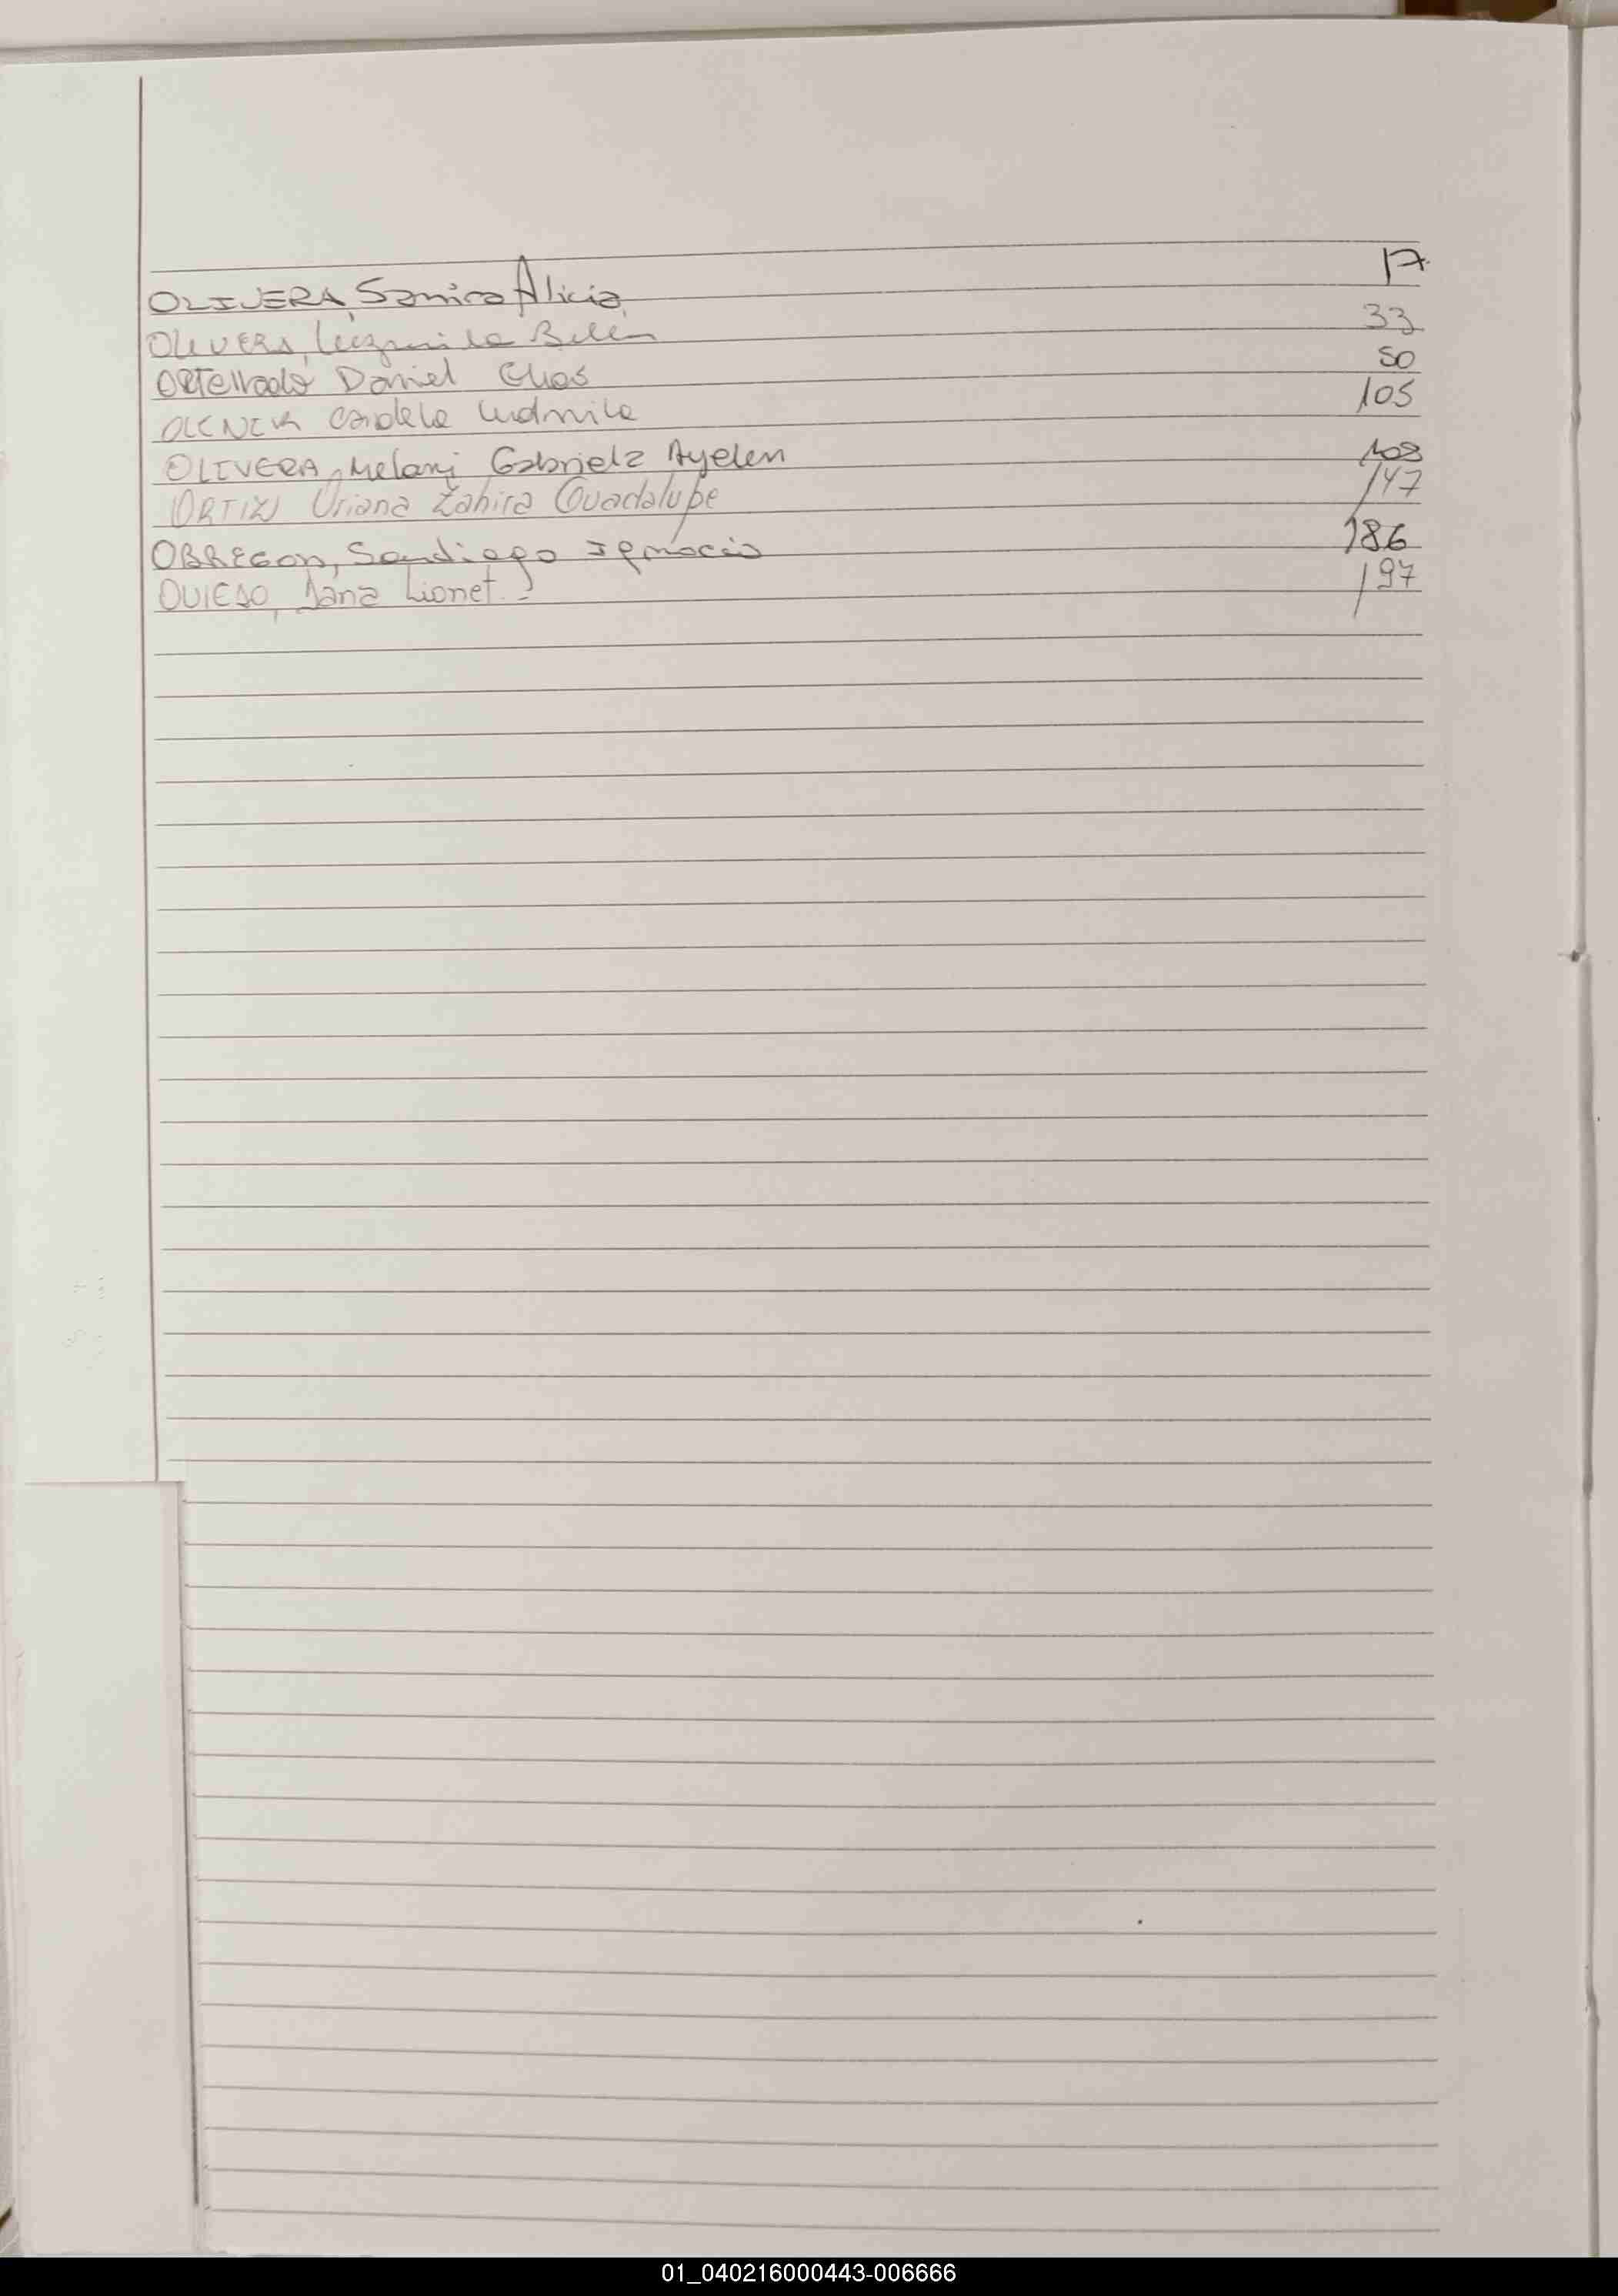 OLIVERA, Samira Alicia 17
OLIVERA, Luzmila Belén 33
ORTellado Daniel Elias 50
Candela Ludmila 105
OLIVERA, Melani Gabriela Ayelen 108
ORTIZ Oriana Zahira Guadalupe 147
OBREGON, Santiago Ignacio 186
OVIEDO, Lionel 197
01_040216000443-006666